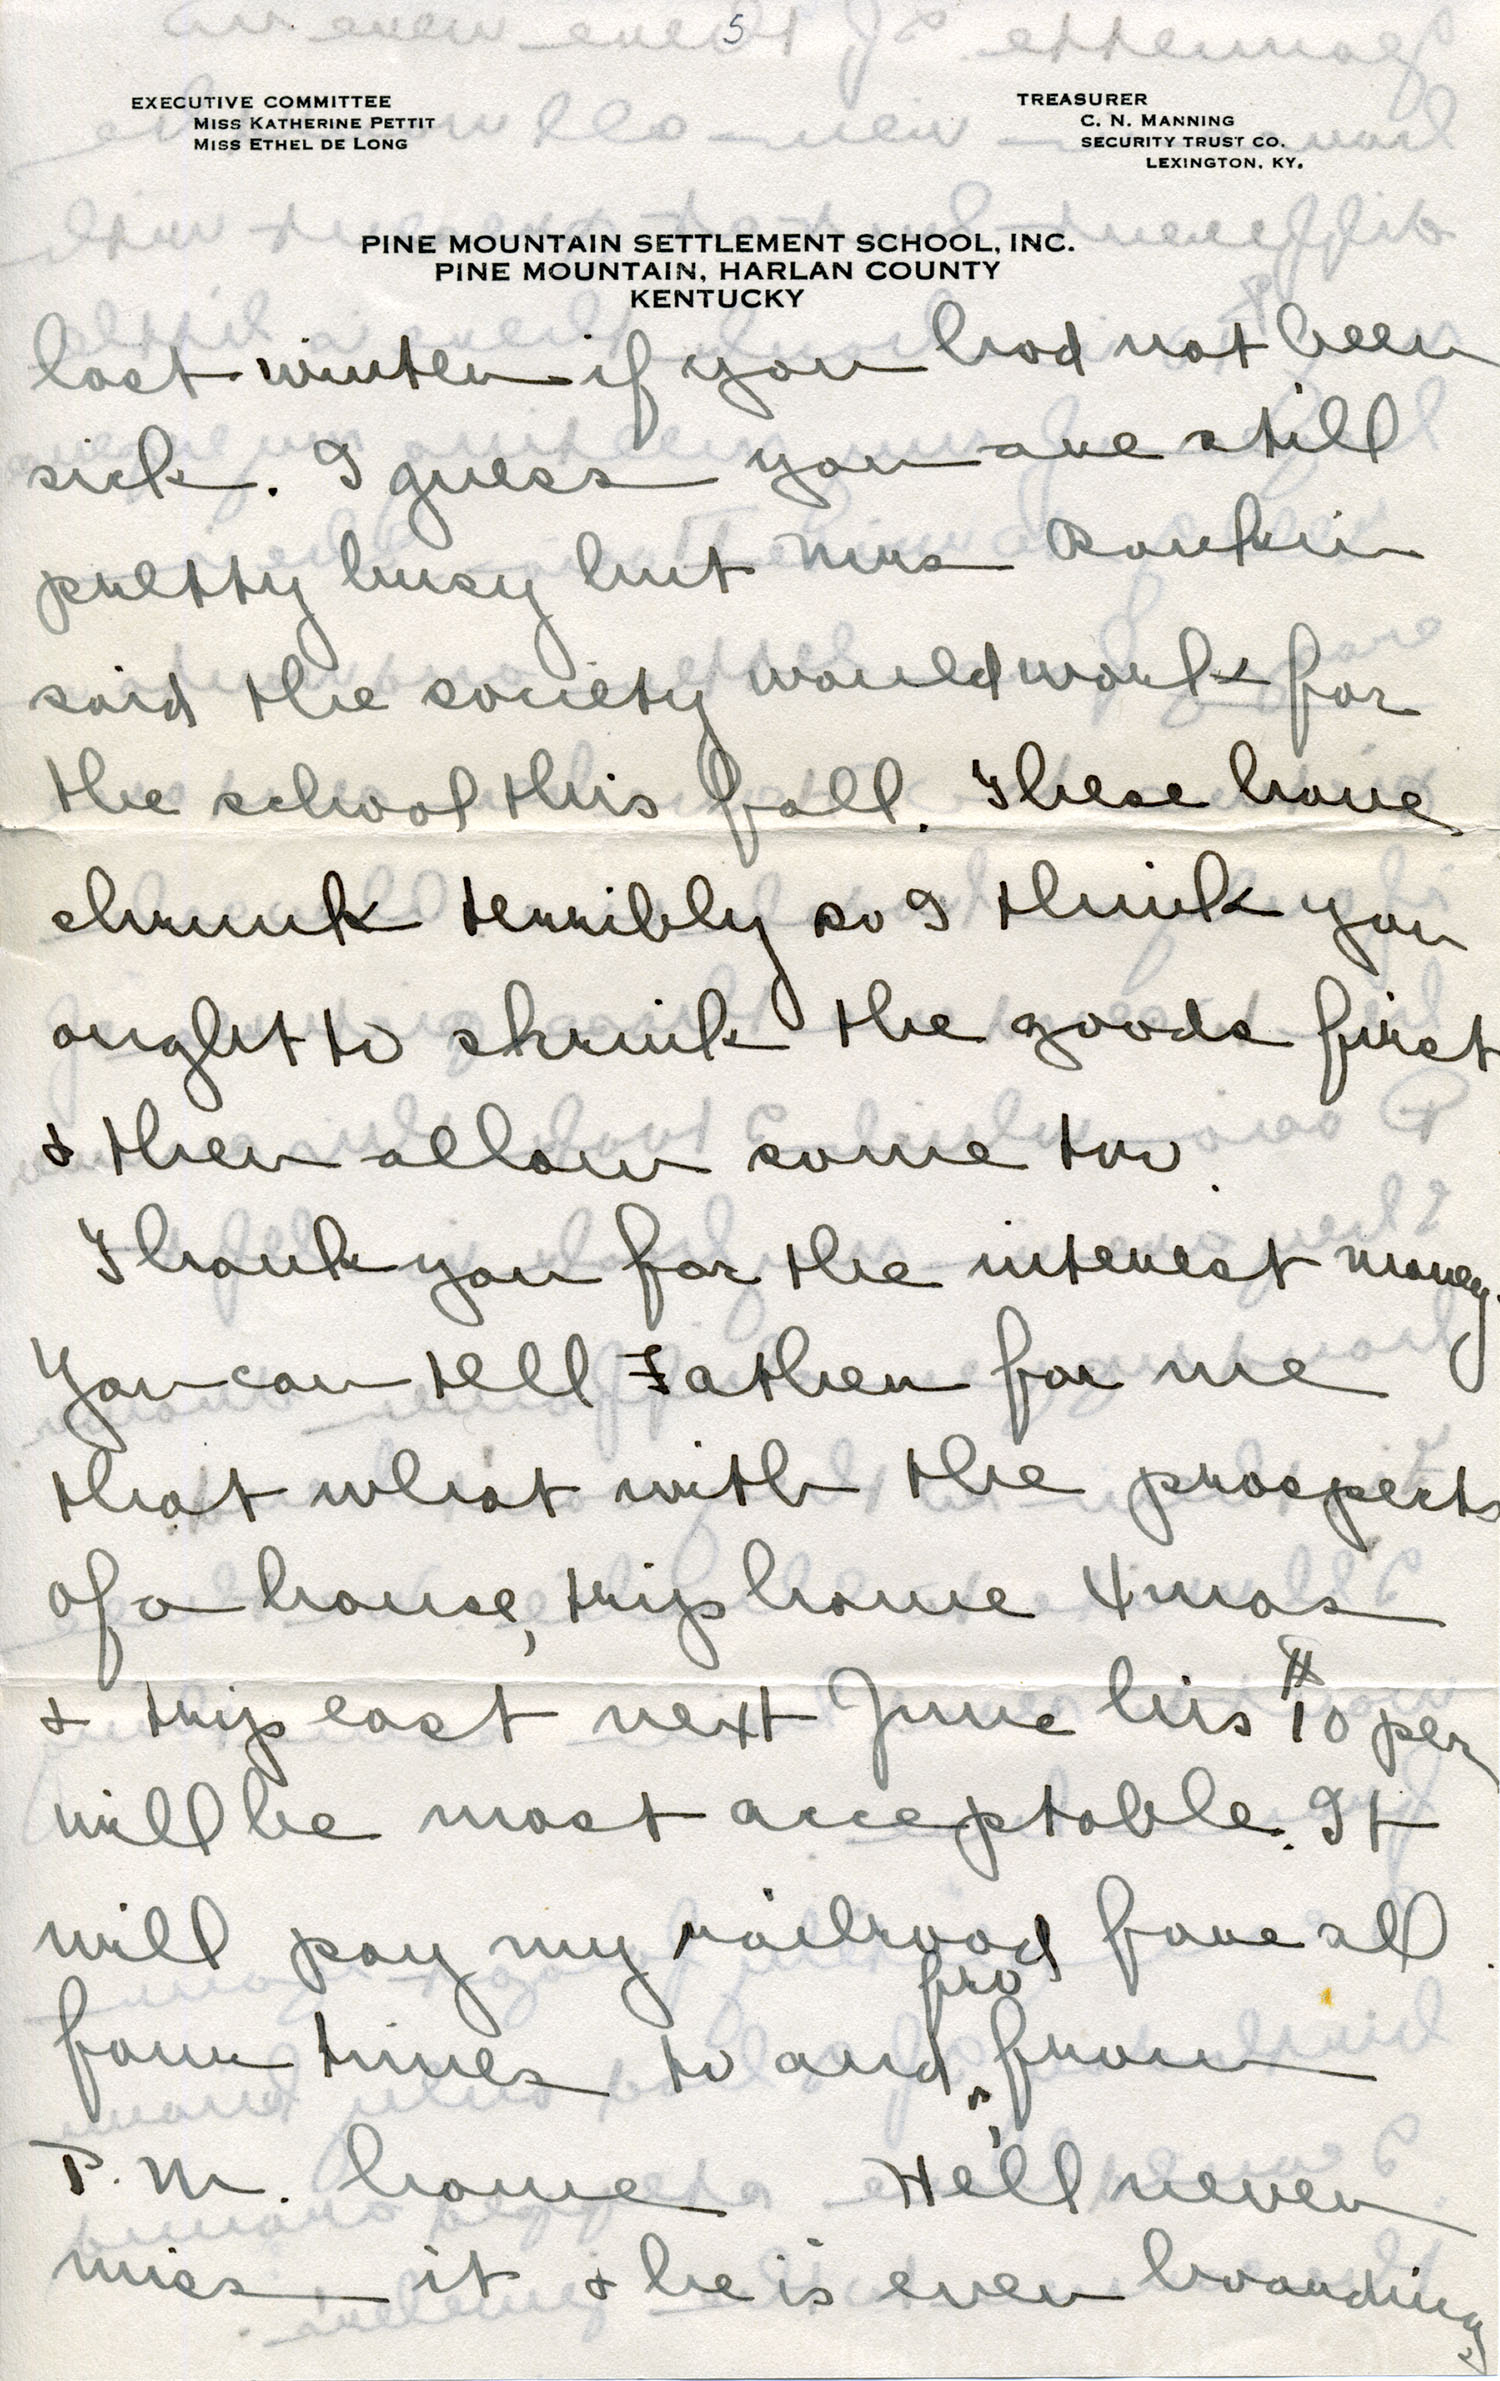 5
EXECUTIVE COMMITTEE
MISS KATHERINE PETTIT
MISS ETHEL DE LONG
TREASURER
C. N. MANNING
SECURITY TRUST CO.
LEXINGTON, KY.
PINE MOUNTAIN SETTLEMENT SCHOOL, INC.
PINE MOUNTAIN, HARLAN COUNTY
KENTUCKY
last winter if you had not been
sick. I guess you are still
pretty busy but Mrs Rankin
said the society would work for
the school this fall. These have
shrunk terribly so I think you
ought to shrink the goods first
& then allow some too.
Thank you for the interest money.
You can tell Father for me
that what with the prospects
of a house, trip home Xmas
& trip east next June his $10 per
will be most acceptable. It
will pay my railroad fare all
four times to and fro from
P. M. home He'll never
miss it & he is even boarding